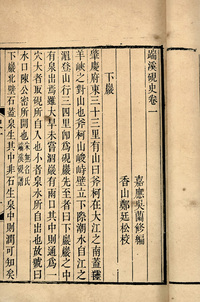 端溪硯史卷一
嘉應吳蘭修編
香山鄭廷松校
下巖
肇慶府東三十三里有山曰斧柯在大江之南蓋靈
羊峽之對山也斧柯山峻峙壁立下際潮水自江之
湄登山行三四里即爲硯巖先至者曰下巖下巖之中
有泉出焉雖大旱未嘗涸巖有兩口其中則通爲一
穴大者取硯所自入也小者泉水所自出也故號曰
水口陳公密所開也
下巖北壁石蓋泉生其中非石生泉中則潤可知矣